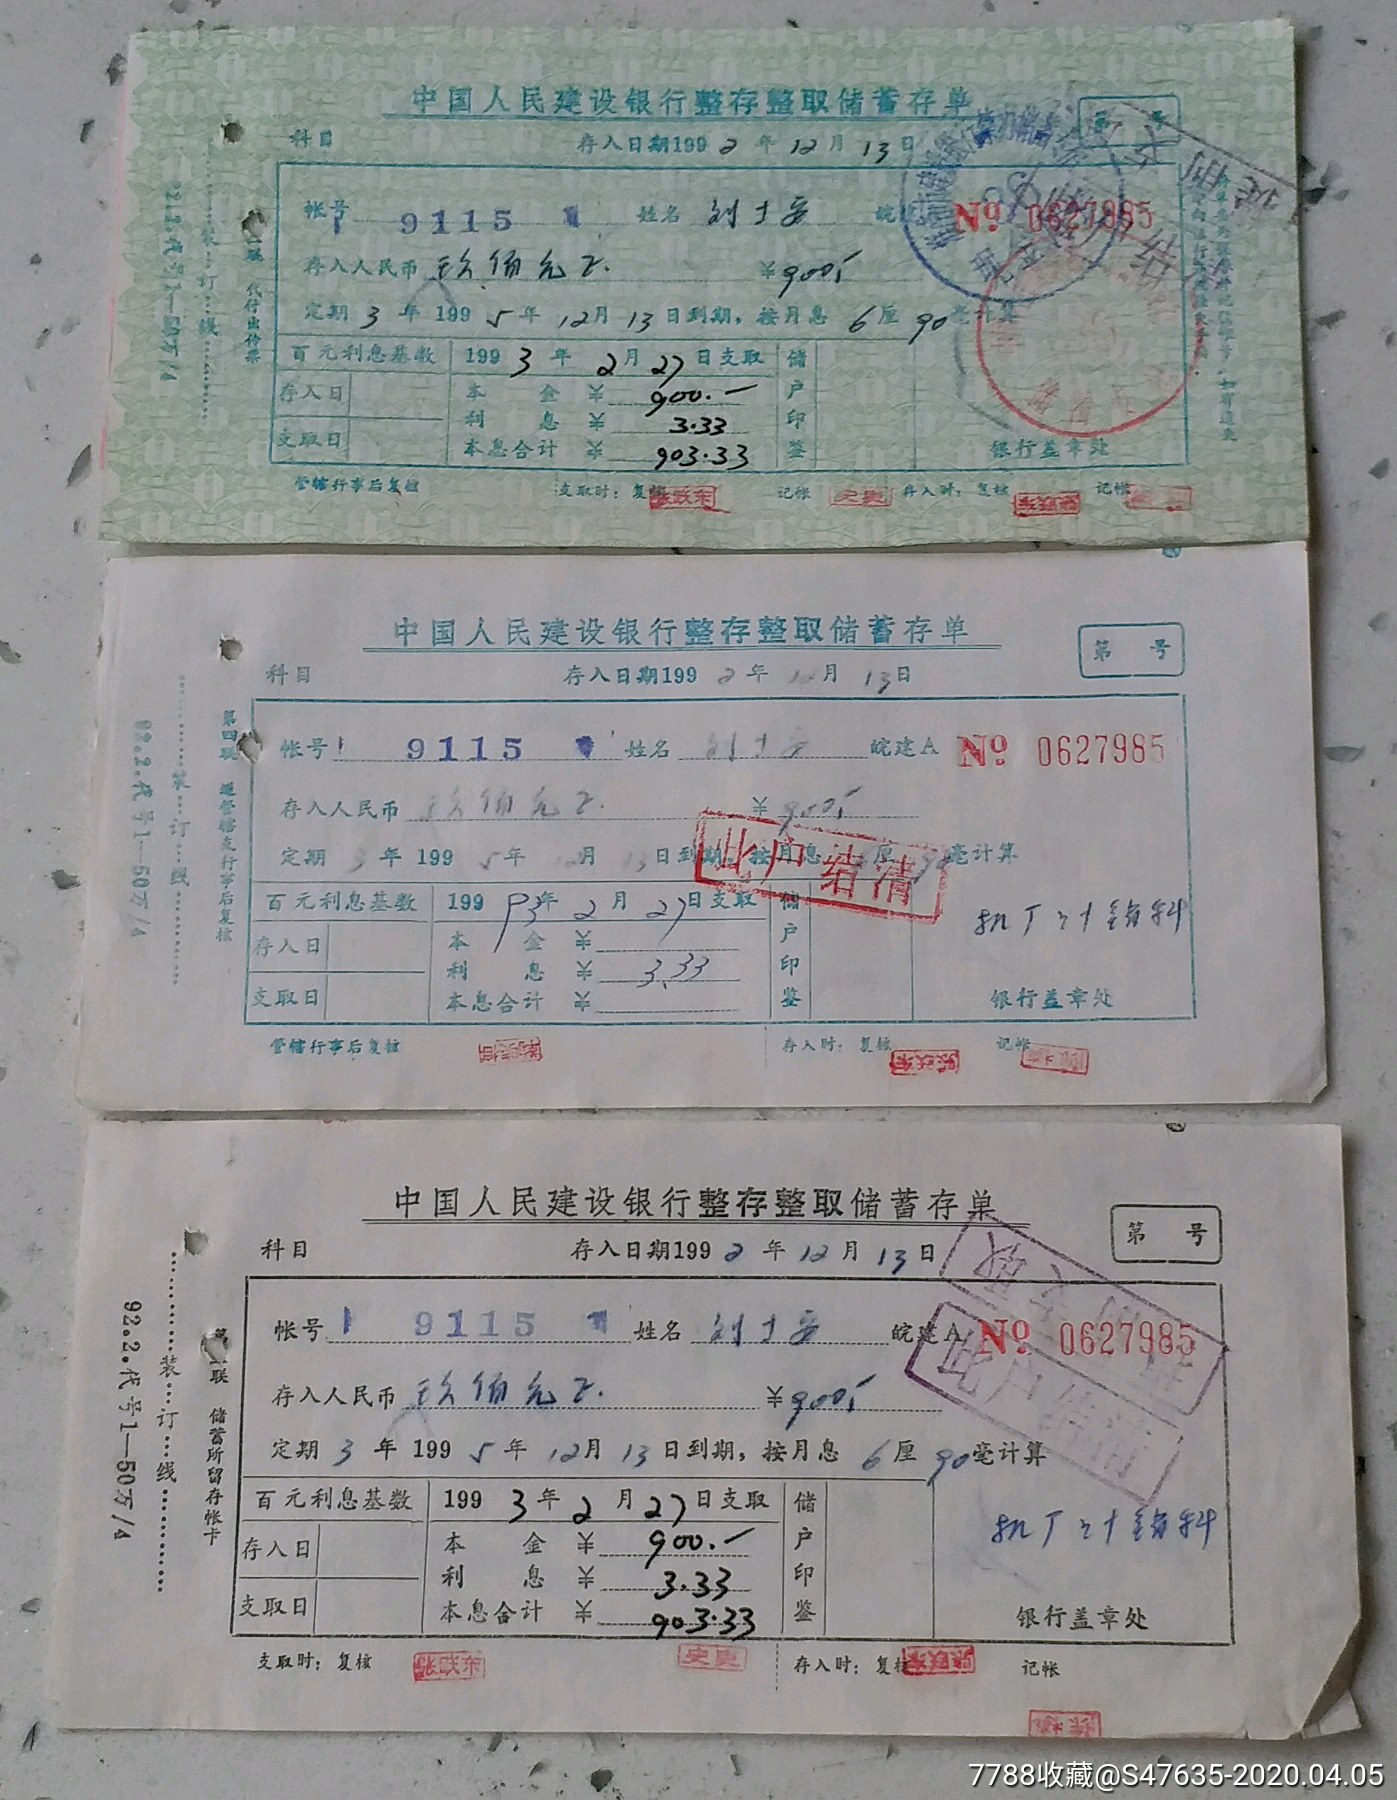 中国人民建设银行整存整取储蓄存单
科目 存入日期1992年12月13日
帐号 9115 姓名 刘士安 皖建 No 0627985
存入人民币 玖佰元正. ¥900.-
定期3年1995年12月13日到期，按月息6厘90毫计算
百元利息基数 1993年2月27日支取 储户印鉴
存入日 本金 ¥ 900.-
利息 ¥ 3.33
支取日 本息合计 ¥ 903.33 银行盖章处
管辖行事后复核 支取时：复核 张跃东 记帐 史更 存入时：复核 张跃东 记帐
代付出传票
装订线
92.2.代号1—50万/4
中国人民建设银行整存整取储蓄存单
第 号
科目 存入日期1992年12月13日
帐号 9115 姓名 刘士安 皖建A No 0627985
存入人民币 玖佰元正. ¥900.-
定期3年1995年12月13日到期，按月息6厘90毫计算
此户结清
百元利息基数 19993年2月27日支取 储户印鉴
存入日 本金 ¥
利息 ¥ 3.33
支取日 本息合计 ¥ 银行盖章处
管辖行事后复核 存入时：复核 张跃东 记帐
第四联 送管辖支行事后复核
装订线
92.2.代号1—50万/4
中国人民建设银行整存整取储蓄存单
第 号
科目 存入日期1992年12月13日
帐号 9115 姓名 刘士安 皖建A No 0627985
此户结清
存入人民币 玖佰元正. ¥900.-
定期3年1995年12月13日到期，按月息6厘90毫计算
百元利息基数 1993年2月27日支取 储户印鉴
存入日 本金 ¥ 900.-
利息 ¥ 3.33
支取日 本息合计 ¥ 903.33 银行盖章处
支取时：复核 张跃东 史更 存入时：复核 张跃东 记帐
联 储蓄所留存帐卡
装订线
92.2.代号1—50万/4
7788收藏@S47635-2020.04.05